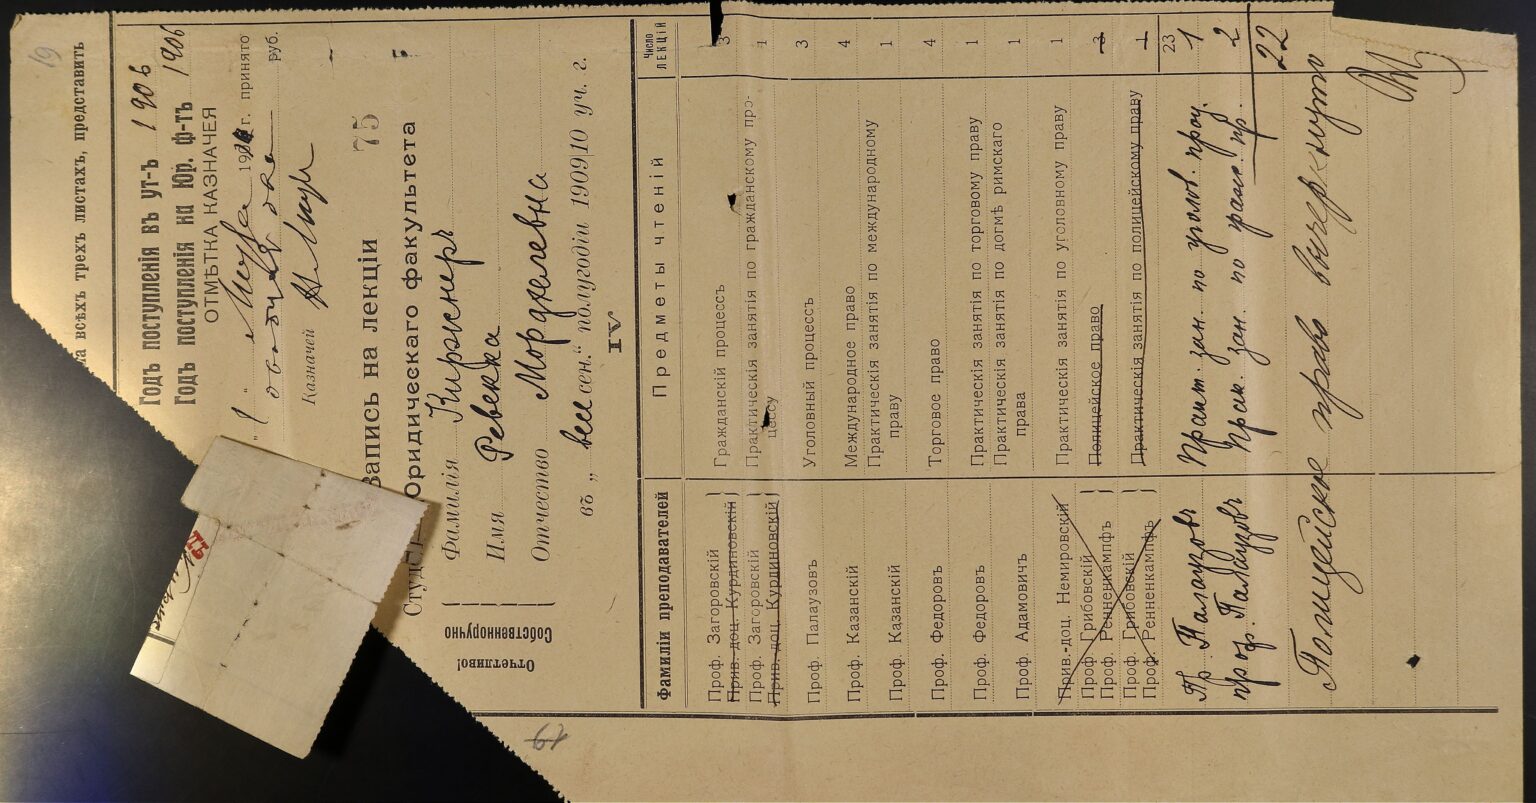 19
на всѣхъ трехъ листахъ, представить
Годъ поступленія въ ут-ъ 1906
Годъ поступленія на Юр. ф-тъ 1906
ОТМѢТКА КАЗНАЧЕЯ
„1“ г. принято
руб.
Казначей
Запись на лекціи 75
Юридическаго факультета
Отчетливо!
Собственноручно
Фамилія Киржнеръ
Имя Ревекка
Отчество Мордхелевна
въ „весен.“ полугодіи 1909|10 уч. г.
IV
Фамиліи преподавателей Предметы чтеній Число лекцій
Проф. Загоровскій Гражданскій процессъ 3
Прив.-доц. Курдиновскій
Проф. Загоровскій Практическія занятія по гражданскому про- 1
Прив.-доц. Курдиновскій цессу
Проф. Палаузовъ Уголовный процессъ 3
Проф. Казанскій Международное право 4
Проф. Казанскій Практическія занятія по международному 1
праву
Проф. Федоровъ Торговое право 4
Проф. Федоровъ Практическія занятія по торговому праву 1
Проф. Адамовичъ Практическія занятія по догмѣ римскаго 1
права
Прив.-доц. Немировскій Практическія занятія по уголовному праву 1
Проф. Грибовскій Полицейское право 3
Проф. Ренненкампфъ
Проф. Грибовскій Практическія занятія по полицейскому праву 1
Проф. Ренненкампфъ
23
Пр. Палаузовъ Практ. зан. по уголов. проц. 1
проф. Палаузовъ Прак. зан. по граж. пр. 2
22
Полицейское право вычеркнуто
19